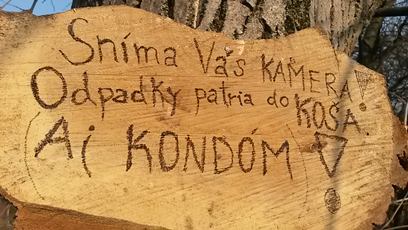 Sníma Vás KAMERA!
Odpadky patria do KOŠA
(Aj KONDÓM)!